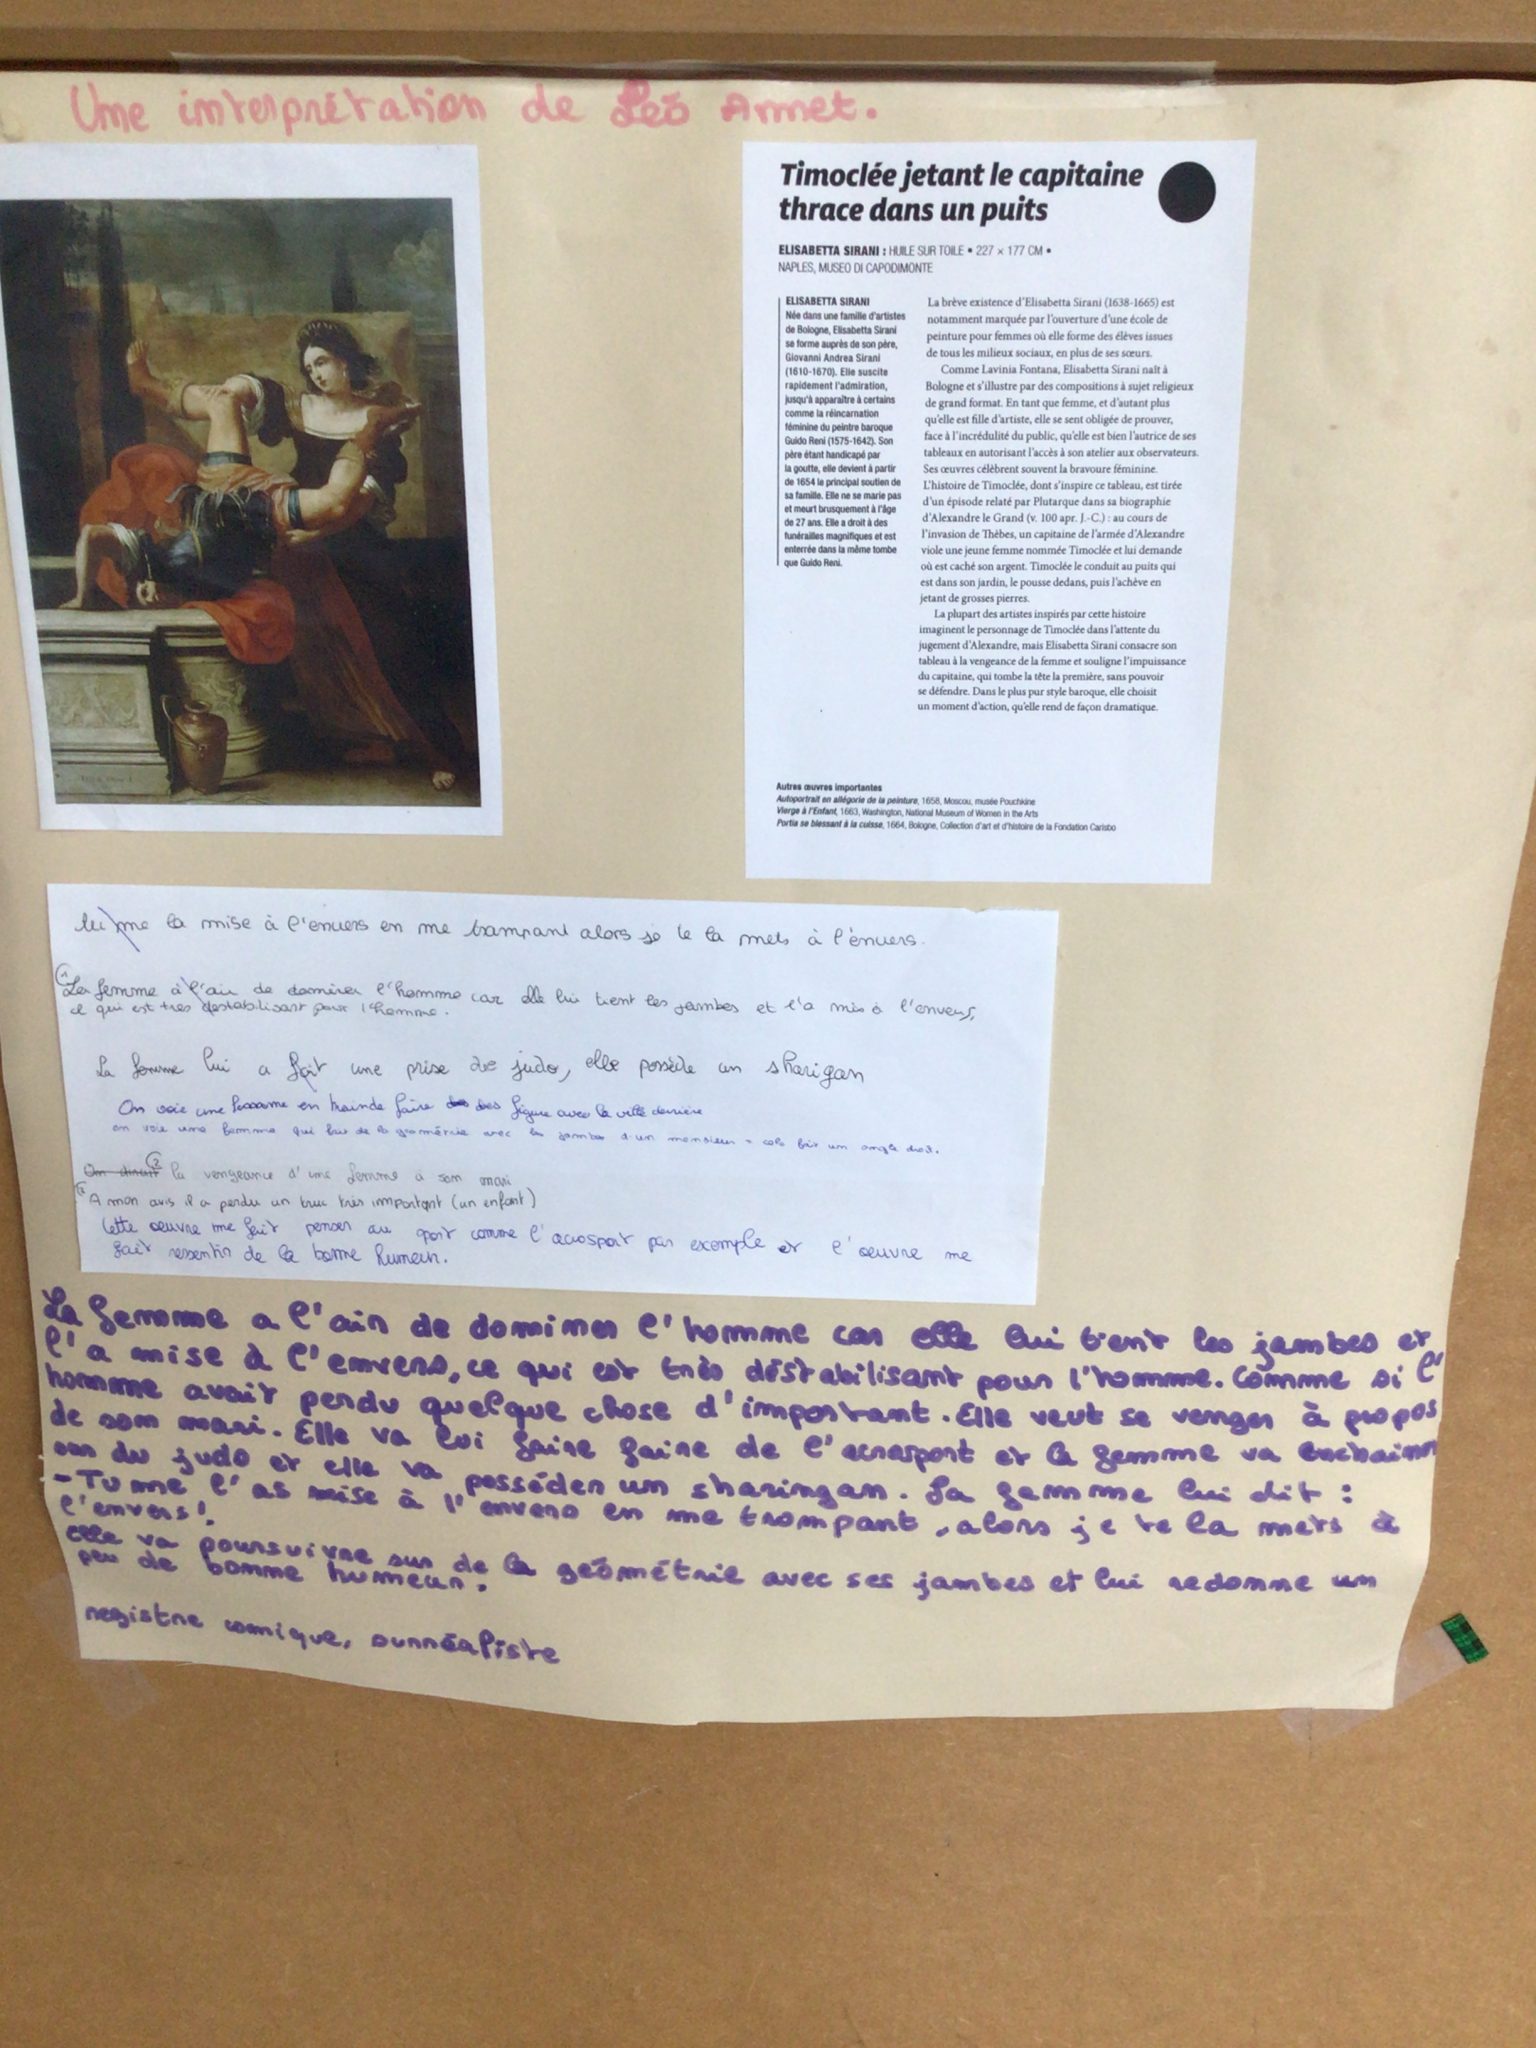 Une interprétation de Léo Annet.
Timoclée jetant le capitaine
thrace dans un puits
ELISABETTA SIRANI : HUILE SUR TOILE • 227 × 177 CM •
NAPLES, MUSEO DI CAPODIMONTE
ELISABETTA SIRANI
Née dans une famille d'artistes
de Bologne, Elisabetta Sirani
se forme auprès de son père,
Giovanni Andrea Sirani
(1610-1670). Elle suscite
rapidement l'admiration,
jusqu'à apparaître à certains
comme la réincarnation
féminine du peintre baroque
Guido Reni (1575-1642). Son
père étant handicapé par
la goutte, elle devient à partir
de 1654 le principal soutien de
sa famille. Elle ne se marie pas
et meurt brusquement à l'âge
de 27 ans. Elle a droit à des
funérailles magnifiques et est
enterrée dans la même tombe
que Guido Reni.
La brève existence d'Elisabetta Sirani (1638-1665) est
notamment marquée par l'ouverture d'une école de
peinture pour femmes où elle forme des élèves issues
de tous les milieux sociaux, en plus de ses sœurs.
Comme Lavinia Fontana, Elisabetta Sirani naît à
Bologne et s'illustre par des compositions à sujet religieux
de grand format. En tant que femme, et d'autant plus
qu'elle est fille d'artiste, elle se sent obligée de prouver,
face à l'incrédulité du public, qu'elle est bien l'autrice de ses
tableaux en autorisant l'accès à son atelier aux observateurs.
Ses œuvres célèbrent souvent la bravoure féminine.
L'histoire de Timoclée, dont s'inspire ce tableau, est tirée
d'un épisode relaté par Plutarque dans sa biographie
d'Alexandre le Grand (v. 100 apr. J.-C.) : au cours de
l'invasion de Thèbes, un capitaine de l'armée d'Alexandre
viole une jeune femme nommée Timoclée et lui demande
où est caché son argent. Timoclée le conduit au puits qui
est dans son jardin, le pousse dedans, puis l'achève en
jetant de grosses pierres.
La plupart des artistes inspirés par cette histoire
imaginent le personnage de Timoclée dans l'attente du
jugement d'Alexandre, mais Elisabetta Sirani consacre son
tableau à la vengeance de la femme et souligne l'impuissance
du capitaine, qui tombe la tête la première, sans pouvoir
se défendre. Dans le plus pur style baroque, elle choisit
un moment d'action, qu'elle rend de façon dramatique.
Autres œuvres importantes
Autoportrait en allégorie de la peinture, 1658, Moscou, musée Pouchkine
Vierge à l'Enfant, 1663, Washington, National Museum of Women in the Arts
Portia se blessant à la cuisse, 1664, Bologne, Collection d'art et d'histoire de la Fondation Carisbo
tu me la mise à l'envers en me trompant alors je te la mets à l'envers.
La femme à l'air de dominer l'homme car elle lui tient les jambes et l'a mis à l'envers,
ce qui est très déstabilisant pour l'homme.
La femme lui a fait une prise de judo, elle possède un sharigan
On voie une femme en train de faire des figure avec la ville derrière
on voie une femme qui fait de la géométrie avec les jambes d'un monsieur = cela fait un angle droit.
On dirait la vengeance d'une femme à son mari
A mon avis il a perdu un truc très important (un enfant)
Cette œuvre me fait penser au sport comme l'acrosport par exemple et l'œuvre me
fait ressentir de la bonne humeur.
La femme a l'air de dominer l'homme car elle lui tient les jambes et
l'a mise à l'envers, ce qui est très déstabilisant pour l'homme. Comme si l'
homme avait perdu quelque chose d'important. Elle veut se venger à propos
de son mari. Elle va lui faire faire de l'acrosport et la femme va enchainer
sur du judo et elle va posséder un sharingan. La femme lui dit :
- Tu me l'as mise à l'envers en me trompant, alors je te la mets à
l'envers!
elle va poursuivre sur de la géométrie avec ses jambes et lui redonne un
peu de bonne humeur.
registre comique, surréaliste